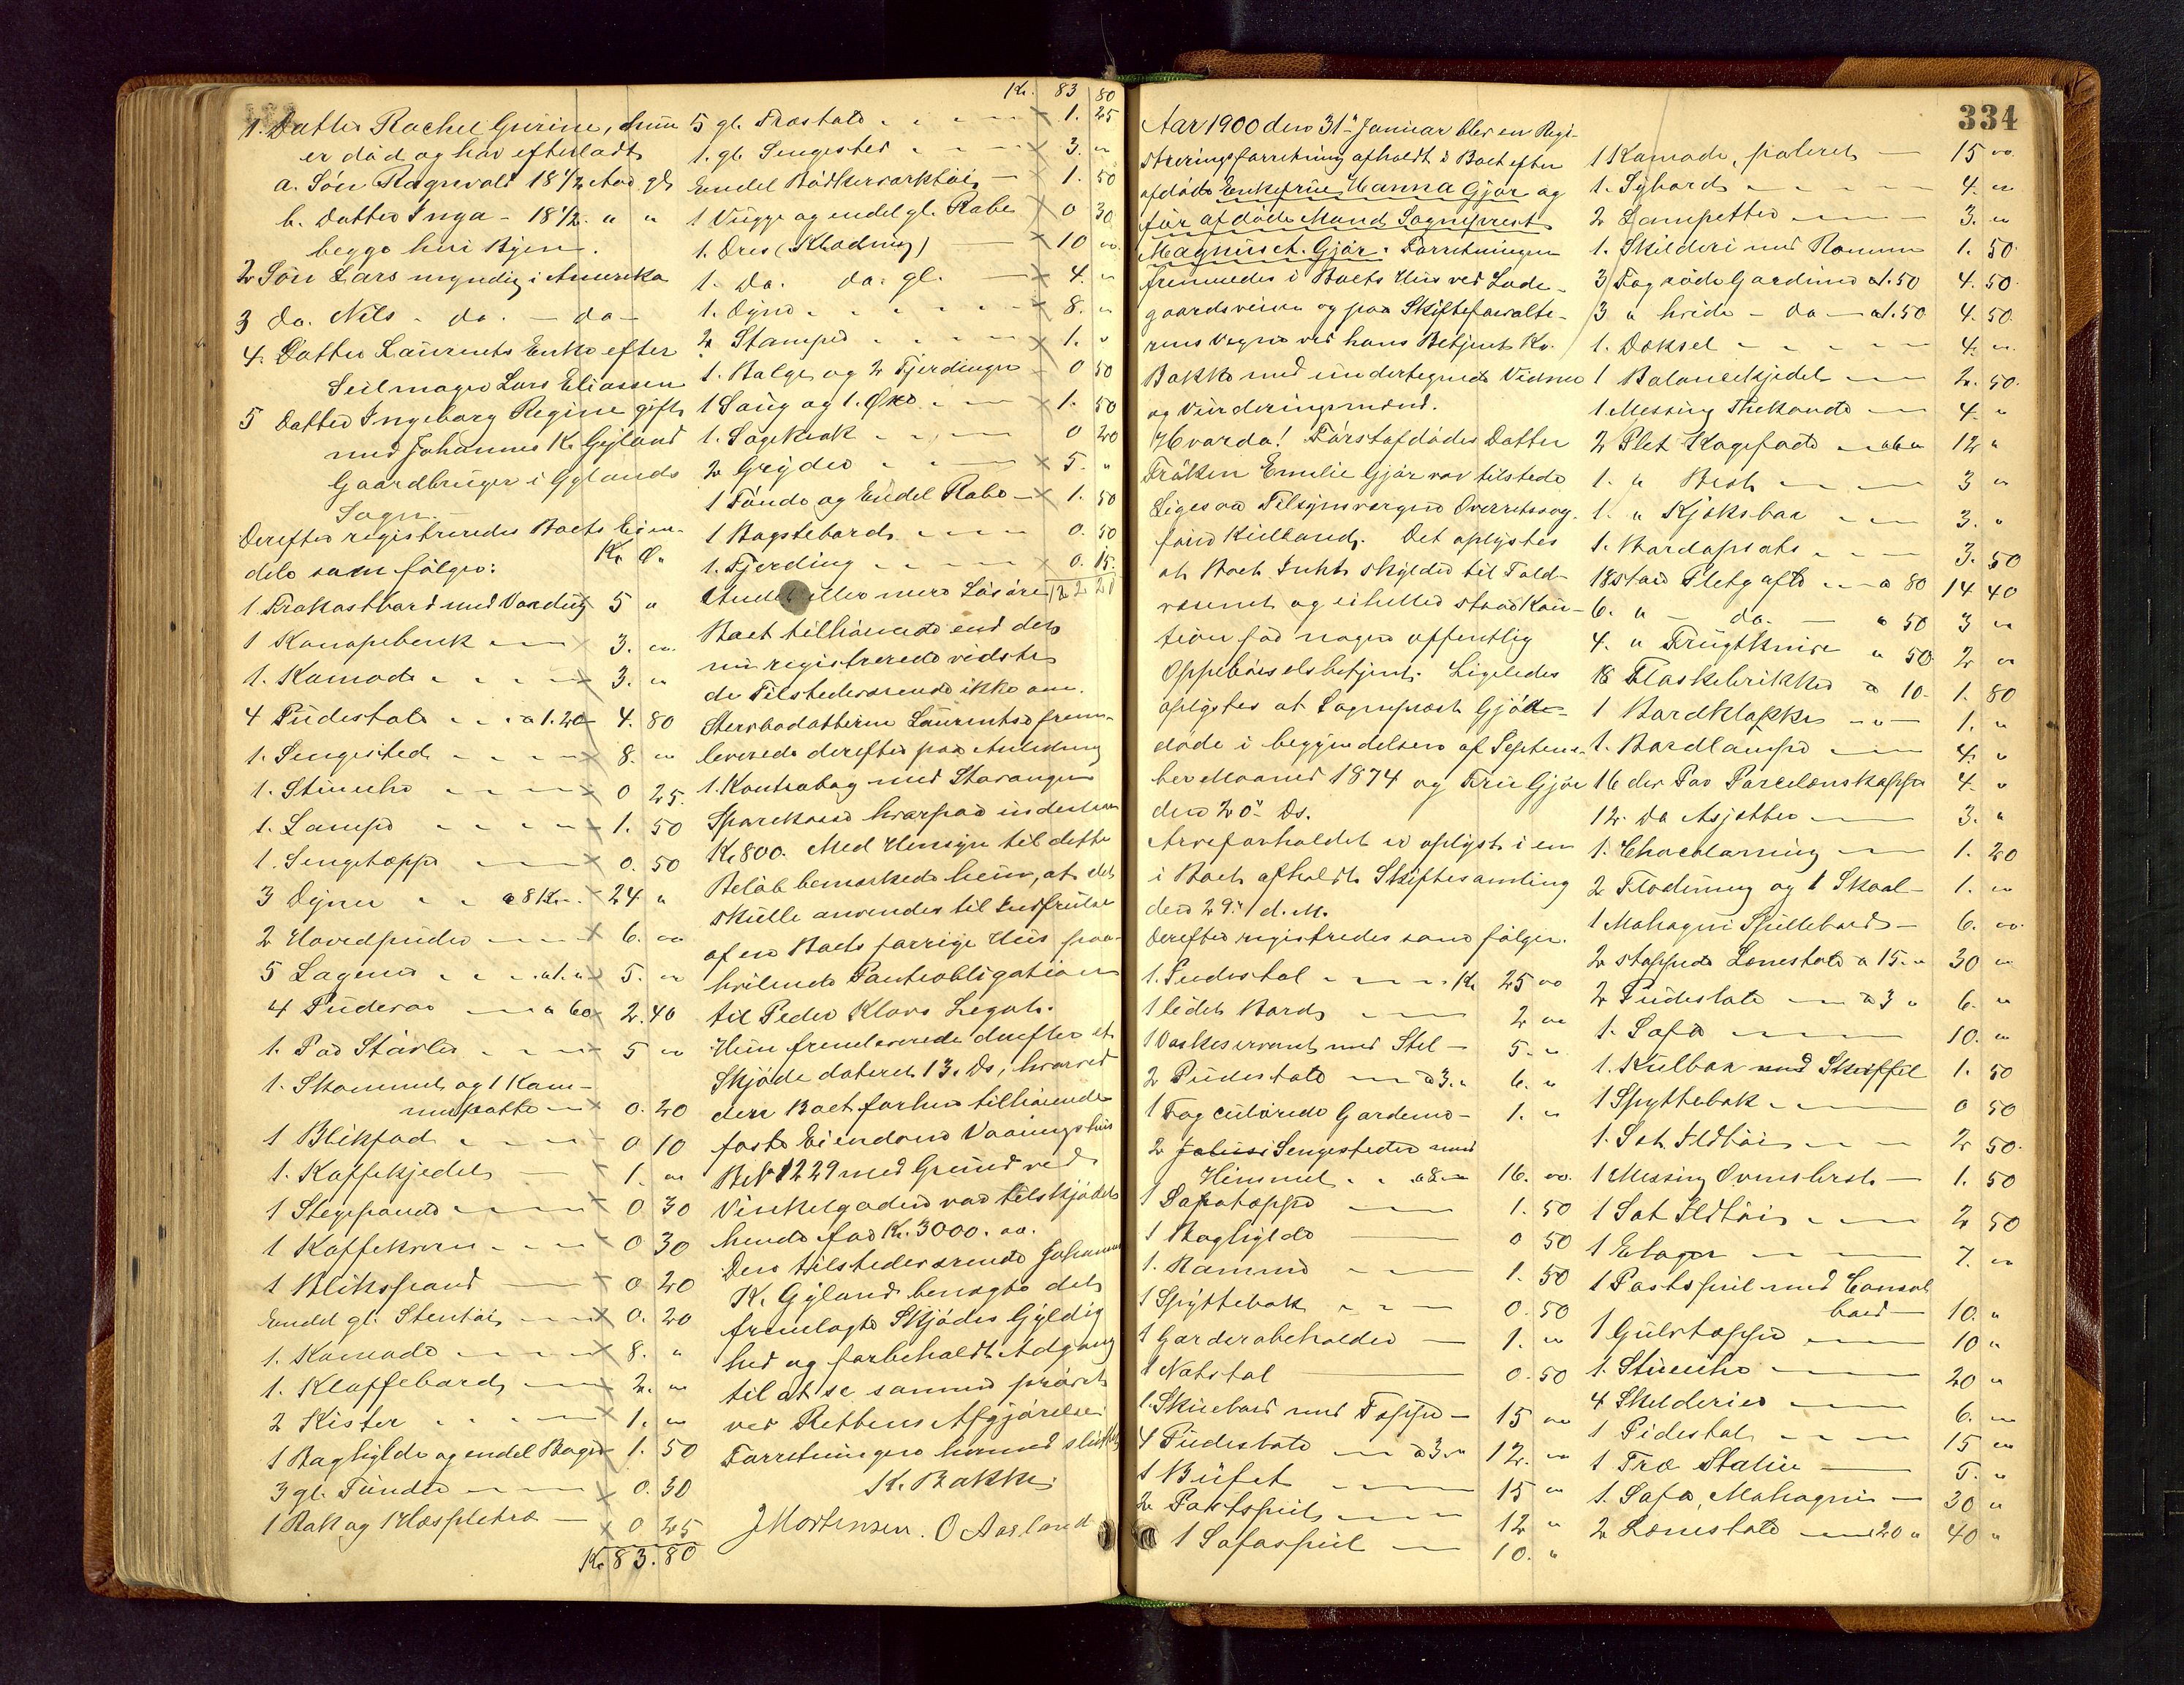 1. Datter Rachel Gurine, hun
er död og har efterladt
a. Sön Ragnvald 18 1/2 Aar gl.
b. Datter Inga - 18 1/2 " "
begge her i Byen.
2 Sön Lars myndig i Amerika
3 do. Nils - do. - do -
4. Datter Laurentse Enke efter
Seilmager Lars Eliassen
5 Datter Ingeborg Regine gift
med Johannes K. Gyland
Gaardbruger i Gylands
Sogn. -
Derefter registreredes Boets Eien-
dele som fölger: Kr. Ö.
1 Frokostbord med Voxdug 5 "
1 Kanapebenk 3. "
1. Komode 3. "
4 Pudestole a 1.20 4. 80
1. Sengested 8. "
1. Stueuhr 0 25.
1. Lampe 1. 50
1. Sengetæppe 0. 50
3 Dyner a 8 Kr. 24 "
2 Hovedpuder 6. "
5 Lagener a 1. " 5. "
4 Pudevar a 60 2.40
1. Par Stövler 5 "
1. Skammel og 1 Kam-
merpotte 0. 20
1 Blikfad 0 10
1. Kaffekjedel 1. "
1 Stegepande 0 30
1 Kaffekvern 0 30
1 Blikspand 0 20
Endel gl. Stentöi 0. 20
1. Komode 8. "
1. Klaffebord 2. "
2 Kister 1. "
1 Boghylde og endel Böger 1. 50
3 gl. Tönder 0. 30
1 Rok og 1 Hespletræ 0 25
Kr. 83. 80
Kr. 83 80
5 gl. Træstole 1. 25
1. gl. Sengested 3. "
Endel Bödkerværktöi 1. 50
1 Vugge og endel gl. Rabe 0 30
1. Dres (Klædning) 10 "
1. Do. do. gl. 4. "
1. Dyne 8. "
2 Stamper 1. "
1. Balge og 2 Fjerdinger 0 50
1 Saug og 1. Öxe 1. 50
1. Sagkrak 0 20
2 Gryder 5. "
1 Tönde og Endel Rabe 1. 50
1 Bagstebord 0. 50
1. Fjerding 0. 15.
Andet eller mere Lösöre 122 20
Boet tilhörende end det
nu registrerede vidste
de Tilstedeværende ikke om.
Stervbodatteren Laurentse frem-
leverede derefter paa Anledning
1. Kontrabog med Stavanger
Sparekasse hvorpaa indestaar
Kr. 800. Med Hensyn til dette
Belöb bemærkede hun, at det
skulle anvendes til Indfrielse
af en Boets forrige Hus paa-
hvilende Panteobligation
til Peder Klovs Legat.
Hun fremleverede derefter et
Skjöde dateret 13. Ds, hvorved
den Boet forhen tilhörende
faste Eiendom Vaaningshus
BNr 1229 med Grund ved
Vinkelgaden var tilskjödet
hende for Kr. 3000. oo.
Den tilstedeværende Johannes
K. Gyland benægte det
fremlagte Skjödes Gyldig
hed og forbeholdt Adgang
til at se samme prövet
ved Rettens Afgjörelse
Forretningen hermed sluttet
K. Bakke
J Mortensen. O Aarland
334
Aar 1900 den 31te Januar blev en Regi-
streringsforretning afholdt i Boet efter
afdöde Enkefrue Hanna Gjör og
för afdöde Mand Sogneprest
Magnus et. Gjör. Forretningen
fremmedes i Boets Hus ved Lade-
gaardsveien og paa Skifteforvalte-
rens Vegne ved hans Betjent K.
Bakke med undertegnede Vidner
og Vurderingsmænd.
Hvorda! Förstafdödes Datter
Fröken Emilie Gjör var tilstede
Ligesaa Tilsynsværge Overretssag-
förer Kielland. Det oplystes
at Boet Intet skylder til Told-
væsenet og ei heller staar Kau-
tion for nogen offentlig
Oppebörselsbetjent. Ligeledes
oplystes at Sogneprest Gjör
döde i begyndelsen af Septem-
ber Maaned 1874 og Frue Gjör
den 20de Ds.
Arveforholdet er oplyst i en
i Boet afholdt Skiftesamling
den 29de d. M.
Derefter registredes som fölger.
1. Pudestol Kr. 25 oo
1 lidet Bord 2 oo
1 Vaskeservant med Stel 5. "
2 Pudestole a 3. " 6. "
1 Fag culörede Gardiner 1. "
2 Sengesteder med
Himmel a 8. " 16. oo.
1 Sofatæppe 1. 50
1 Boghylde 0 50
1. Ramme 1. 50
1 Spyttebak 0. 50
1 Garderobeholder 1. "
1 Natstol 0. 50
1. Skrivebord med Tæppe 15 oo
4 Pudestole a 3. " 12. "
1 Büfet 15 "
2 Portspeil 12 "
1 Sofaspeil 10. "
1 Komode, poleret 15 oo.
1. Sybord 4. "
2 Lampetter 3. "
1. Skilderi med Ramme 1. 50.
3 Fag röde Gardiner a 1.50 4. 50.
3 " hvide - do - a 1.50 4. 50.
1. Dæksel 4. "
1 Balancekjedel 2. 50.
1. Messing Thekande 4. "
2 Plet Kagefade a 6 " 12 "
1. " Besk 3 "
1. " Kjæksbox 3. "
1. Bordopsats 3. 50
18 store Pletgafler a 80 14 40
6. " - do. - a 50 3 "
4. " Frugtknive a 50 2 "
18 Flaskebrikker a 10 1. 80
1 Bordklokke 1. "
1. Bordlampe 4. "
16 der Par Porcelænskopper 4. "
12. do Asjetter 3. "
1. Chocolademug 1. 20
2 Flödemug og 1 Skaal 1. "
1 Mahogni Spillebord 6. oo.
2 stoppede Lænestole a 15. " 30 "
2 Pudestole a 3 " 6. "
1. Sofa 10. "
1. Kulbox med Skuffel 1. 50
1 Spyttebak 0 50
1. Sæt Ildtöi 2 50.
1 Messing Ovnsbrst 1. 50
1 Sæt Ildtöi 2 50
1 Etager 7. "
1 Portspeil med Consol
bord 10. "
1 Gulvtæppe 10 "
1. Stueuhr 20 "
4 Skilderier 6. "
1 Pidestal 15 "
1 Træ Statue 5. "
1. Sofa, Mahogni 30 "
2 Lænestole a 20 " 40 "